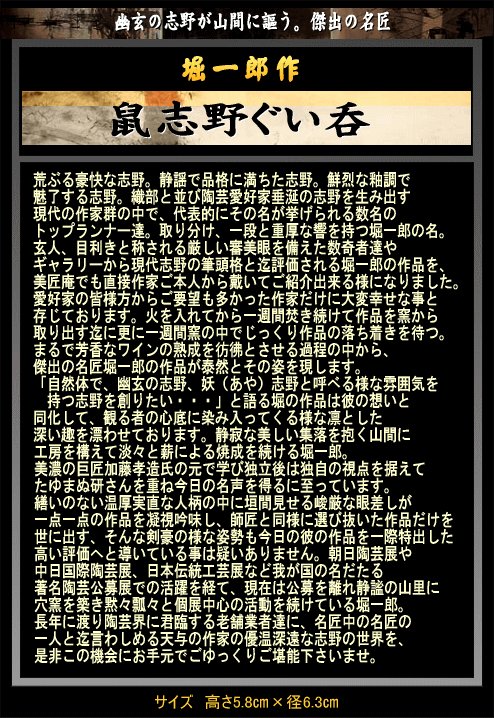 幽玄の志野が山間に謳う。傑出の名匠
堀一郎作
鼠志野ぐい呑
荒ぶる豪快な志野。静謐で品格に満ちた志野。鮮烈な釉調で
魅了する志野。織部と並び陶芸愛好家垂涎の志野を生み出す
現代の作家群の中で、代表的にその名が挙げられる数名の
トップランナー達。取り分け、一段と重厚な響を持つ堀一郎の名。
玄人、目利きと称される厳しい審美眼を備えた数奇者達や
ギャラリーから現代志野の筆頭格と迄評価される堀一郎の作品を、
美匠庵でも直接作家ご本人から戴いてご紹介出来る様になりました。
愛好家の皆様方からご要望も多かった作家だけに大変幸せな事と
存じております。火を入れてから一週間焚き続けて作品を窯から
取り出す迄に更に一週間窯の中でじっくり作品の落ち着きを待つ。
まるで芳香なワインの熟成を彷彿とさせる過程の中から、
傑出の名匠堀一郎の作品が泰然とその姿を現します。
「自然体で、幽玄の志野、妖（あや）志野と呼べる様な雰囲気を
持つ志野を創りたい・・・」と語る堀の作品は彼の想いと
同化して、観る者の心底に染み入ってくる様な凛とした
深い趣を漂わせております。静寂な美しい集落を抱く山間に
工房を構えて淡々と薪による焼成を続ける堀一郎。
美濃の巨匠加藤孝造氏の元で学び独立後は独自の視点を据えて
たゆまぬ研さんを重ね今日の名声を得るに至っています。
繕いのない温厚実直な人柄の中に垣間見せる峻厳な眼差しが
一点一点の作品を凝視吟味し、師匠と同様に選び抜いた作品だけを
世に出す、そんな剣豪の様な姿勢も今日の彼の作品を一際特出した
高い評価へと導いている事は疑いありません。朝日陶芸展や
中日国際陶芸展、日本伝統工芸展など我が国の名だたる
著名陶芸公募展での活躍を経て、現在は公募を離れ静謐の山里に
穴窯を築き黙々瓢々と個展中心の活動を続けている堀一郎。
長年に渡り陶芸界に君臨する老舗業者達に、名匠中の名匠の
一人と迄言わしめる天与の作家の優温深遠な志野の世界を、
是非この機会にお手元でごゆっくりご堪能下さいませ。
サイズ 高さ5.8cm×径6.3cm